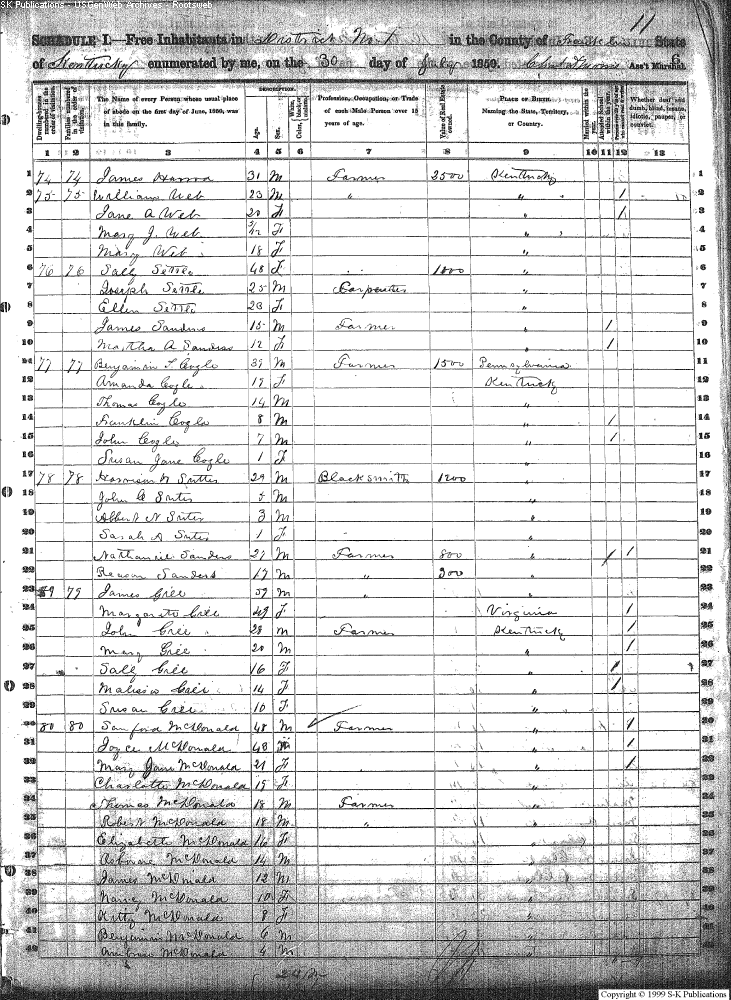 SK Publications - USGenWeb Archives - Rootsweb
11
SCHEDULE I.—Free Inhabitants in District No. 1 in the County of Franklin State
of Kentucky enumerated by me, on the 30 day of July 1850. Ass't Marshal. 6
Dwelling-houses numbered in the order of visitation.
Families numbered in the order of visitation.
The Name of every Person whose usual place of abode on the first day of June, 1850, was in this family.
DESCRIPTION.
Age.
Sex.
White, black, or mulatto. Color,
Profession, Occupation, or Trade of each Male Person over 15 years of age.
Value of Real Estate owned.
PLACE OF BIRTH. Naming the State, Territory, or Country.
Married within the year.
Attended School within the year.
Whether deaf and dumb, blind, insane, idiotic, pauper, or convict.
1 2 3 4 5 6 7 8 9 10 11 12 13
1 74 74 James 31 M Farmer 2500 Kentucky 1
2 75 75 William Web 23 M " " / 2
3 Jane A Web 20 F " / 3
4 Mary J. Web 3/12 F " 4
5 Mary Web 18 F " 5
6 76 76 Sally Settle 48 F 1000 " 6
7 Joseph Settle 25 M Carpenter " 7
8 Ellen Settle 23 F " 8
9 James Sanders 15 M Farmer " / 9
10 Martha A Sanders 12 F " / 10
11 77 77 Benjamin F Cogle 39 M Farmer 1500 Pennsylvania 11
12 Amanda Cogle 19 F Kentucky 12
13 Thomas Cogle 14 M " 13
14 Franklin Cogle 8 M " / 14
15 John Cogle 7 M " / 15
16 Susan Jane Cogle 1 F " 16
17 78 78 Harrison N Suter 29 M Blacksmith 1200 " 17
18 John C Suter 5 M " 18
19 Albert N Suter 3 M " 19
20 Sarah A Suter 1 F " 20
21 Nathaniel Sanders 27 M Farmer 800 " / / 21
22 Reason Sanders 17 M " 300 " 22
23 79 79 James Gree 59 M " " 23
24 Margarete Gree F Virginia / 24
25 John Gree 28 M Farmer Kentucky / 25
26 Mary Gree 20 M " / 26
27 Sally Gree 16 F " / 27
28 Malissa Gree 14 F " / 28
29 Susan Gree 10 F " 29
30 80 80 Sanford McDonald 48 M Farmer " / 30
31 Joyce McDonald 48 " / 31
32 Mary Jane McDonald 21 F " / 32
33 Charlotte McDonald 19 F " 33
34 Thomas McDonald 18 M Farmer " 34
35 Robert McDonald 18 M " " 35
36 Elizabeth McDonald 16 F " 36
37 McDonald 14 M " 37
38 James McDonald 12 M " 38
39 Nancy McDonald 10 F " 39
40 Kitty McDonald 8 F " 40
41 Benjamin McDonald 6 M " 41
42 McDonald 4 M " 42
24 M
Copyright © 1999 S-K Publications